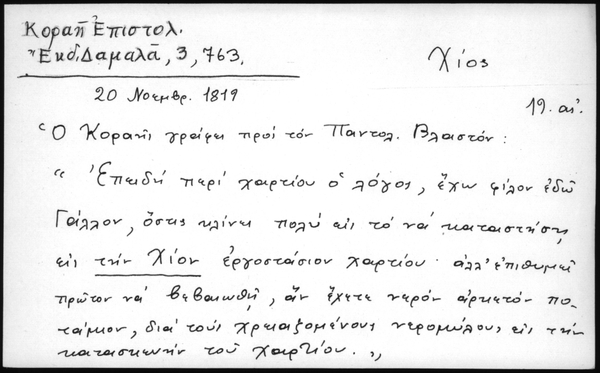 Κοραῆ Ἐπιστολ.
Ἔκδ. Δαμαλᾶ, 3, 763.
Χίος
20 Νοεμβρ. 1819
19. αἰ.
Ὁ Κοραῆς γράφει πρὸς τὸν Παντολ. Βλαστόν:
"Ἐπειδή περί χαρτίου ὁ λόγος, ἔχω φίλον ἐδῶ
Γάλλον, ὅστις κλίνει πολύ εἰς τό νά καταστήσῃ
εἰς τήν Χίον ἐργοστάσιον χαρτίου· ἀλλ' ἐπιθυμεῖ
πρῶτον νά βεβαιωθῇ, ἄν ἔχετε νερόν ἀρκετόν πο-
τάμιον, διά τούς χρειαζομένους νερομύλους εἰς τήν
κατασκευήν τοῦ χαρτίου."